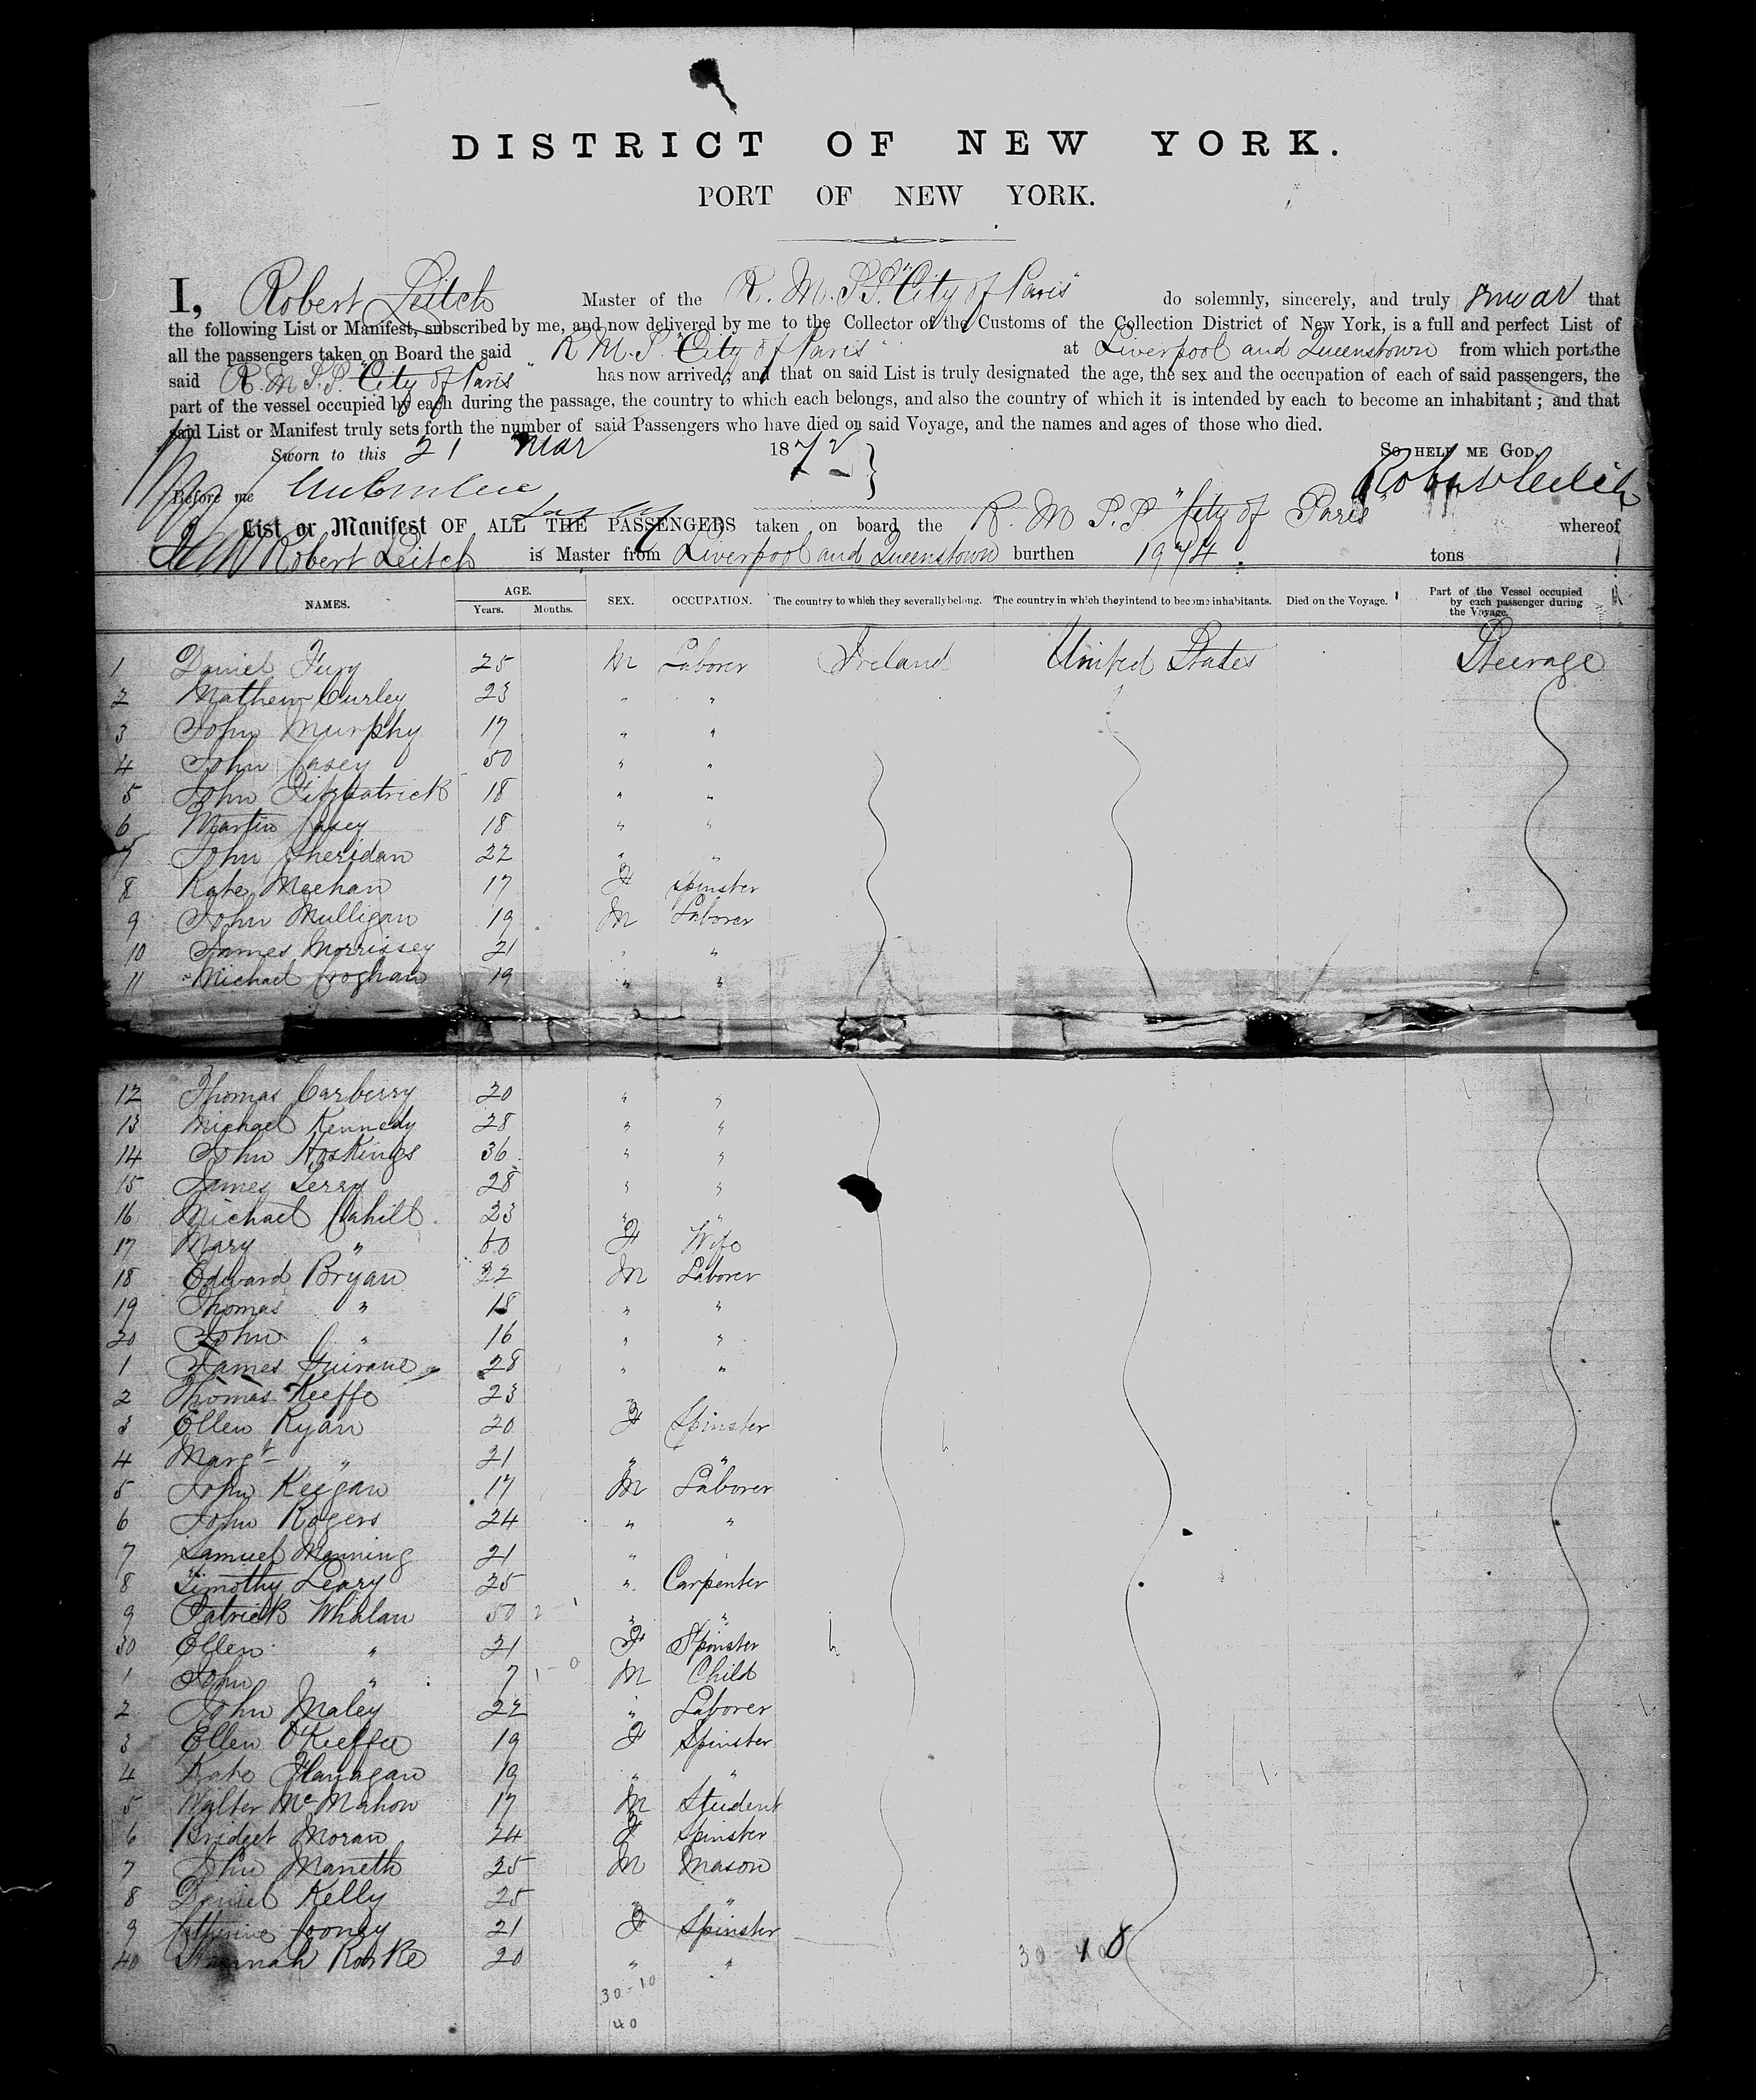 DISTRICT OF NEW YORK.
PORT OF NEW YORK.
I, Robert Leitch Master of the R. M. S. S. "City of Paris" do solemnly, sincerely, and truly swear that
the following List or Manifest, subscribed by me, and now delivered by me to the Collector of the Customs of the Collection District of New York, is a full and perfect List of
all the passengers taken on Board the said R M. S. "City of Paris" at Liverpool and Queenstown from which port the
said R. M S. S. "City of Paris" has now arrived; and that on said List is truly designated the age, the sex and the occupation of each of said passengers, the
part of the vessel occupied by each during the passage, the country to which each belongs, and also the country of which it is intended by each to become an inhabitant; and that
said List or Manifest truly sets forth the number of said Passengers who have died on said Voyage, and the names and ages of those who died.
Sworn to this 21 Mar 1872 So HELP ME GOD.
Before me Robert Leitch
List or Manifest OF ALL THE PASSENGERS taken on board the R. M S. S. "City of Paris" whereof
Robert Leitch is Master from Liverpool and Queenstown burthen 1974 tons
NAMES. AGE. Years. Months. SEX. OCCUPATION. The country to which they severally belong. The country in which they intend to become inhabitants. Died on the Voyage. Part of the Vessel occupied by each passenger during the Voyage.
1 Daniel Fury 25 M Laborer Ireland United States Steerage
2 Mathew Curley 23 " "
3 John Murphy 17 " "
4 John Casey 50 " "
5 John Fitzpatrick 18 " "
6 Martin Casey 18 " "
7 John Sheridan 22 " "
8 Kate Meehan 17 F Spinster
9 John Mulligan 19 M Laborer
10 James Morrissey 21 " "
11 Michael Croghan 19 " "
12 Thomas Carberry 20 " "
13 Michael Kennedy 28 " "
14 John Hoskings 36 " "
15 James Terry 28 " "
16 Michael Cahill 23 " "
17 Mary " 60 F Wife
18 Edward Bryan 22 M Laborer
19 Thomas " 18 " "
20 John " 16 " "
1 James 28 " "
2 Thomas Keeffe 23
3 Ellen Ryan 20 F Spinster
4 Margt " 21 " "
5 John Keegan 17 M Laborer
6 John Rogers 24 " "
7 Samuel Manning 21 "
8 Timothy Leary 25 " Carpenter
9 Patrick Whalan 50 " "
30 Ellen " 21 F Spinster
1 John " 7 M Child
2 John Maley 22 " Laborer
3 Ellen O'Keeffee 19 F Spinster
4 Kate Flanagan 19 " "
5 Walter McMahon 17 M Student
6 Bridget Moran 24 F Spinster
7 John Maneth 25 M Mason
8 Daniel Kelly 25 " "
9 Catherine Cooney 21 F Spinster
40 Hannah Rorke 20 " "
30-10
40